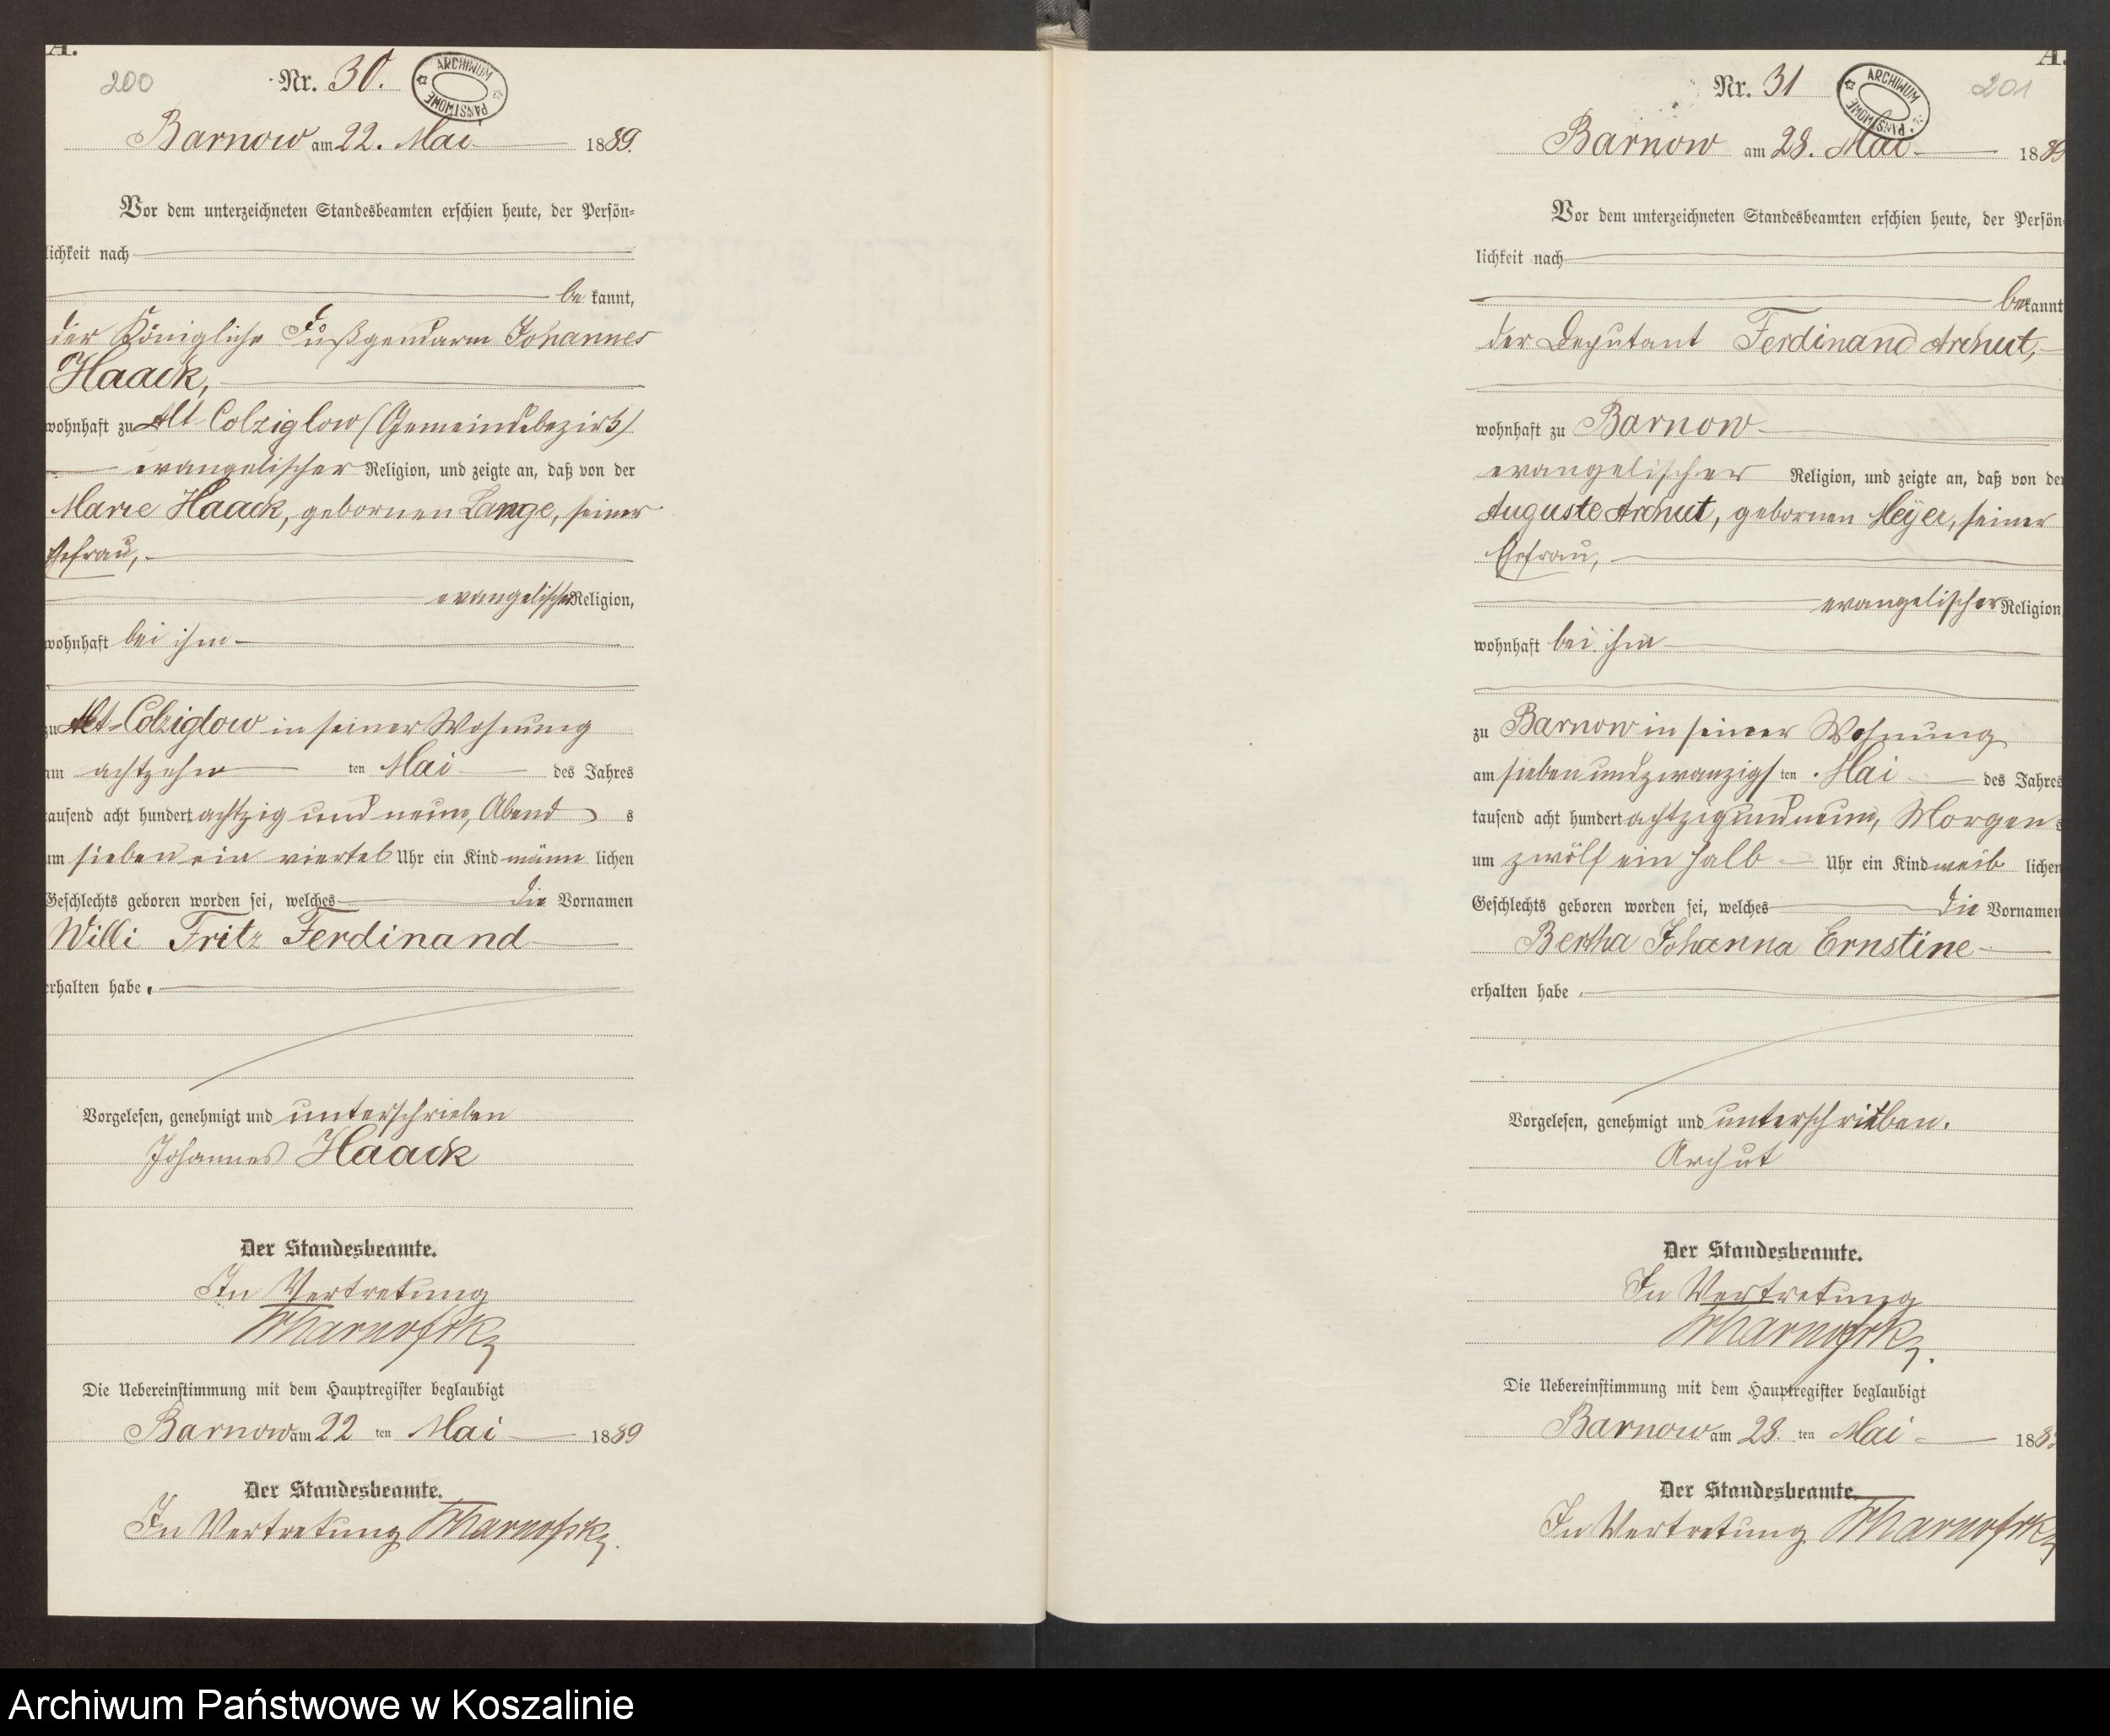 A.
200
Nr. 30.
ARCHIWUM PAŃSTWOWE
Barnow am 22. Mai 1889.
Vor dem unterzeichneten Standesbeamten erschien heute, der Persön-
lichkeit nach
be kannt,
der Königliche Fußgendarm Johannes
Haack,
wohnhaft zu Alt Colziglow (Gemeindebezirk)
evangelischer Religion, und zeigte an, daß von der
Marie Haack, gebornen Lange, seiner
Ehefrau,
evangelischer Religion,
wohnhaft bei ihm
zu Alt-Colziglow in seiner Wohnung
am achtzehn ten Mai des Jahres
tausend acht hundert achtzig und neun, Abend s
um sieben ein viertel Uhr ein Kind männ lichen
Geschlechts geboren worden sei, welches die Vornamen
Willi Fritz Ferdinand
erhalten habe.
Vorgelesen, genehmigt und unterschrieben
Johannes Haack
Der Standesbeamte.
In Vertretung
Die Uebereinstimmung mit dem Hauptregister beglaubigt
Barnow am 22 ten Mai 1889
Der Standesbeamte.
In Vertretung
A.
201
Nr. 31
ARCHIWUM PAŃSTWOWE
Barnow am 28. Mai 1889
Vor dem unterzeichneten Standesbeamten erschien heute, der Persön-
lichkeit nach
be kannt
der Deputant Ferdinand Archut,
wohnhaft zu Barnow
evangelischer Religion, und zeigte an, daß von der
Auguste Archut, gebornen Meyer, seiner
Ehefrau,
evangelischer Religion
wohnhaft bei ihm
zu Barnow in seiner Wohnung
am siebenundzwanzigs ten Mai des Jahres
tausend acht hundert achtzigundneun, Morgen s
um zwölf ein halb Uhr ein Kind weib lichen
Geschlechts geboren worden sei, welches die Vornamen
Bertha Johanna Ernstine
erhalten habe.
Vorgelesen, genehmigt und unterschrieben.
Archut
Der Standesbeamte.
In Vertretung
Die Uebereinstimmung mit dem Hauptregister beglaubigt
Barnow am 28. ten Mai 188
Der Standesbeamte.
In Vertretung
Archiwum Państwowe w Koszalinie